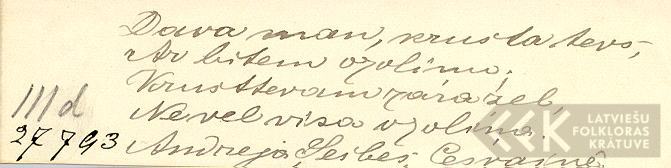 Dava man, krusta tevs,
Ar bitem ozolinu;
Krusttevam zāra žel,
Ne vel visa ozolina.
Andreja Geibes, Cesvainē
III d
27793
LATVIEŠU
FOLKLORAS
KRĀTUVE